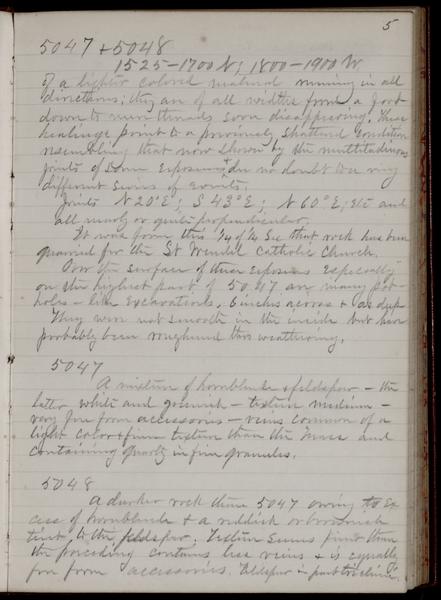 5
5047 + 5048
1525-1700 N; 1800-1900 W
of a lighter colored material running in all
directions; they are of all widths from a foot
down to mere threads soon disappearing. These
healings point to a previously shattered condition
resembling that now shown by the multitudinous
joints of some exposures + due no doubt to a very
different series of events.
Joints N 20° E; S 43° E; N 60° E; etc and
all nearly or quite perpendicular.
It was from this 1/4 of 1/4 Sec that rock has been
quarried for the St Wendel Catholic Church.
Over the surface of these exposures especially
on the highest part of 5047 are many pot-
holes-like excavations. 6 inches across + as deep
They were not smooth in the inside but have
probably been roughened thro weathering.
5047
A mixture of hornblende + feldspar - the
latter white and greenish - texture medium -
very free from accessories - veins common of a
light color + finer texture than the mass and
containing quartz in fine granules.
5048
A darker rock than 5047 owing to ex-
cess of hornblende + a reddish or brownish
tint to the feldspar. Texture seems finer than
the preceding contains less veins + is equally
free from accessories. Feldspar in part triclinic.